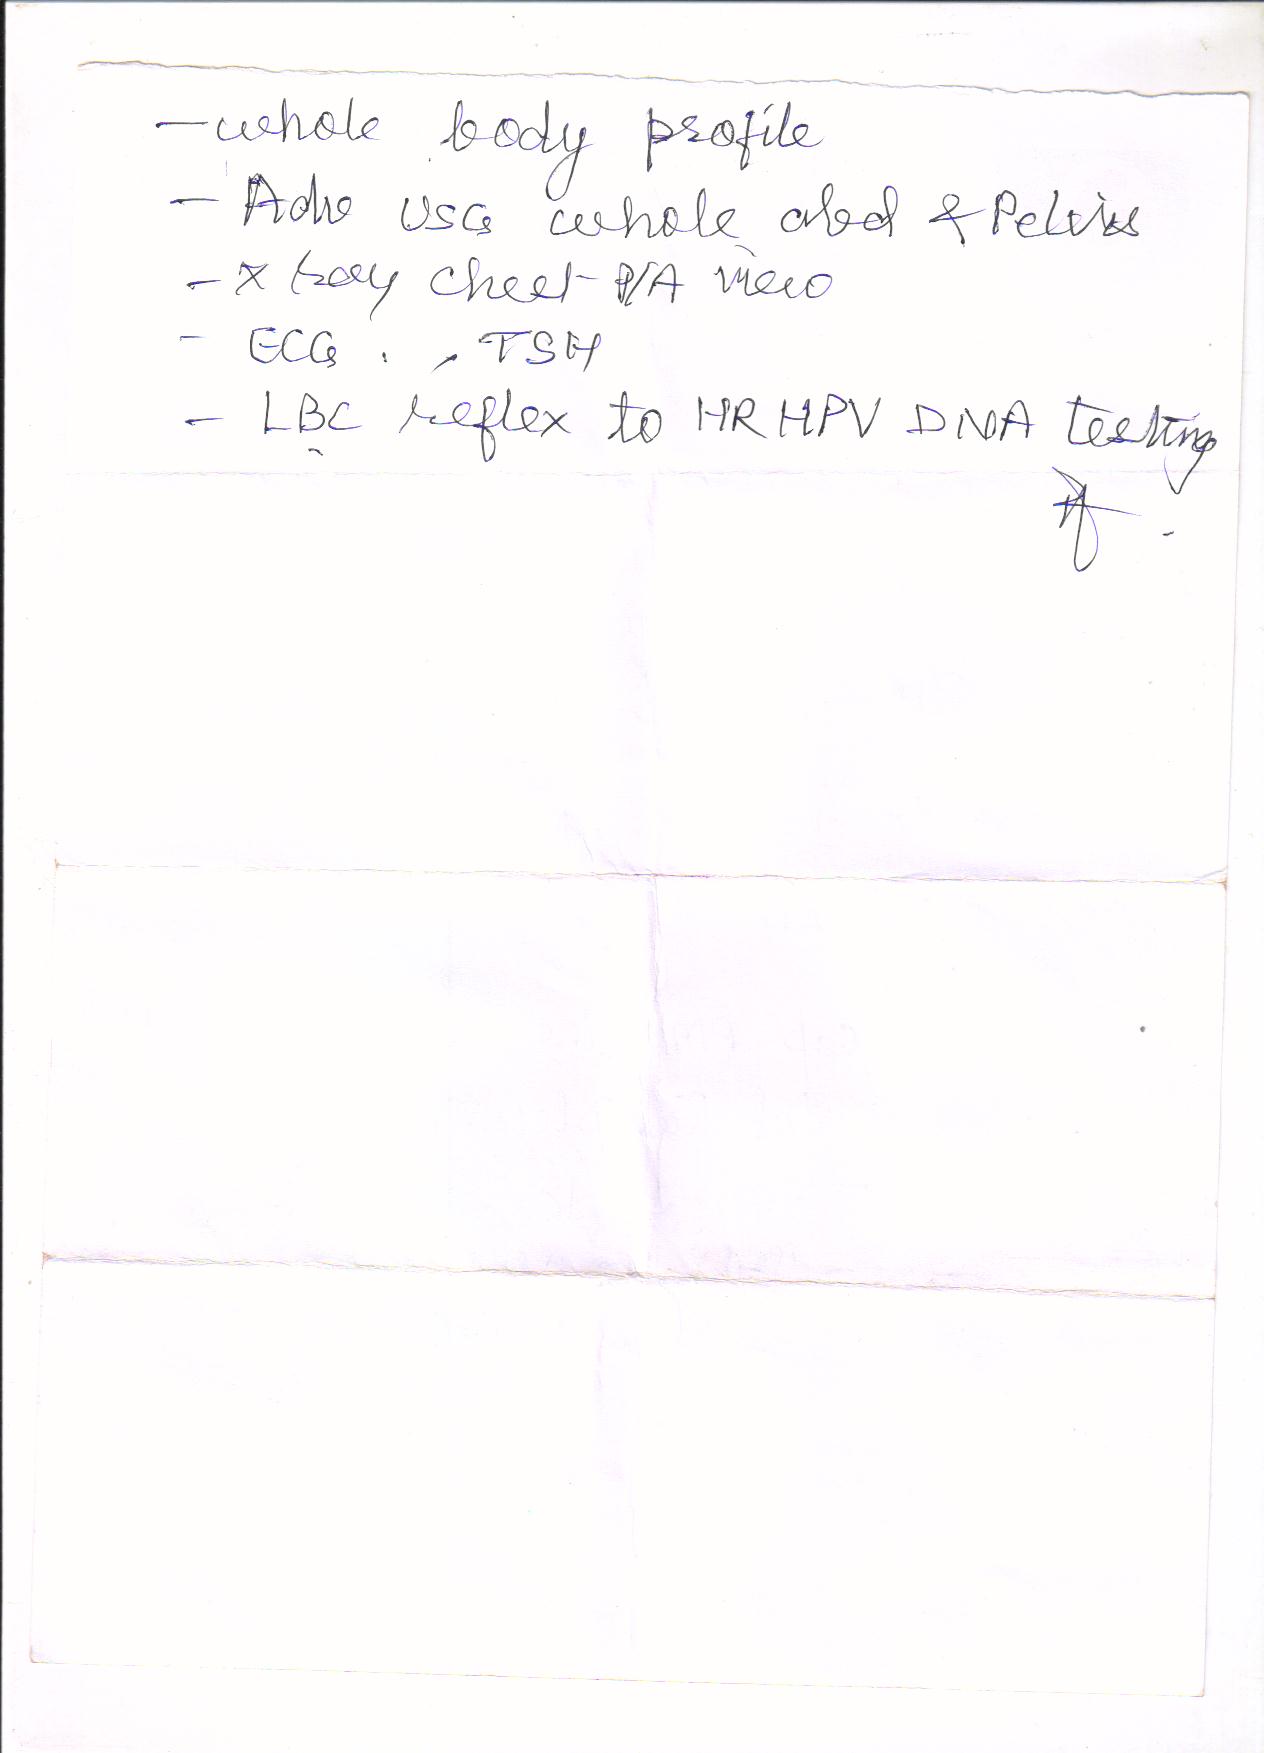 - whole body profile
- Adv USG whole abd & Pelvis
- X ray chest P/A view
- ECG . , TSH
- LBC reflex to HR HPV DNA testing